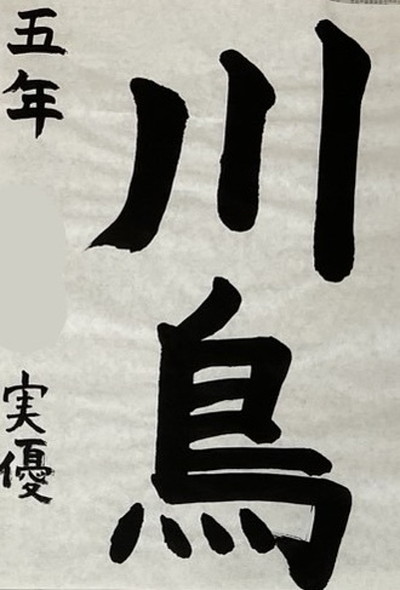 川鳥
五年
実優